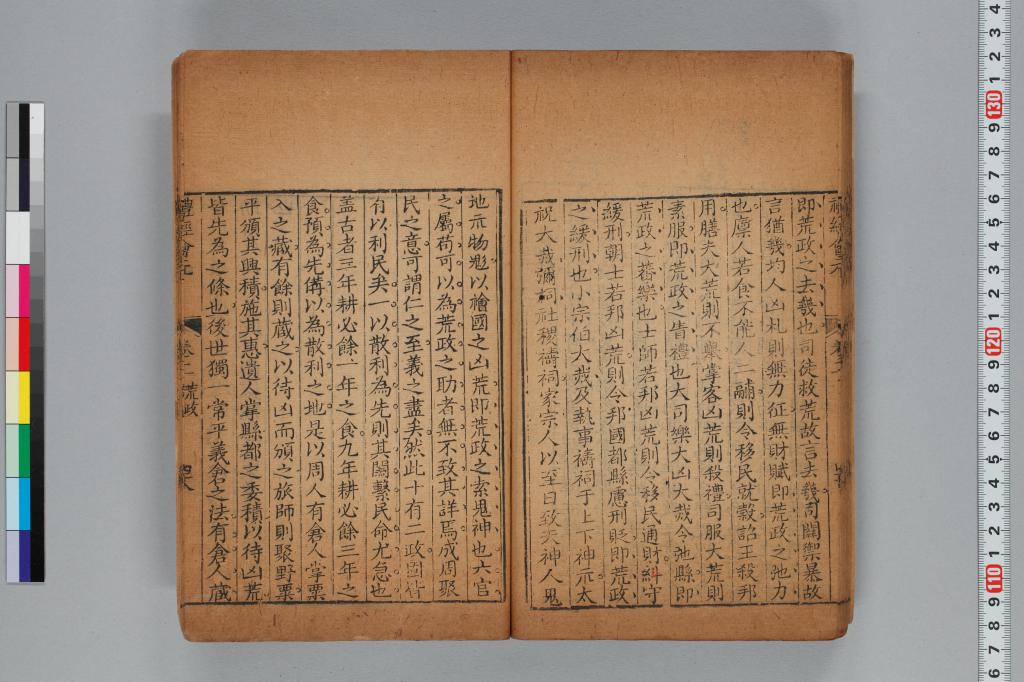 即荒政之去幾也司徒救荒故言去幾司關禦暴故
言猶幾均人凶札則無力征無財賦即荒政之弛力
也廩人若食不能人二鬴則令移民就穀詔王殺邦
用膳夫大荒則不舉掌客凶荒則殺禮司服大荒則
素服即荒政之眚禮也大司樂大凶大烖令弛縣即
荒政之蕃樂也士師若邦凶荒則令移民通財糾守
緩刑朝士若邦凶荒則令邦國都縣慮刑貶即荒政
之緩刑也小宗伯大烖及執事禱祠于上下神示太
祝大烖彌祠社稷禱祠家宗人以至日致天神人鬼
地示物鬽以禬國之凶荒即荒政之索鬼神也六官
之屬苟可以為荒政之助者無不致其詳焉成周聚
民之意可謂仁之至義之盡矣然此十有二政固皆
有以利民矣一以散利為先則其關繫民命尤急也
盖古者三年耕必餘一年之食九年耕必餘三年之
食預為先俻以為散利之地是以周人有倉人掌粟
入之藏有餘則藏之以待凶而頒之旅師則聚野粟
平頒其興積施其惠遺人掌縣都之委積以待凶荒
皆先為之條也後世獨一常平義倉之法有倉人藏
禮經會元
卷二 荒政